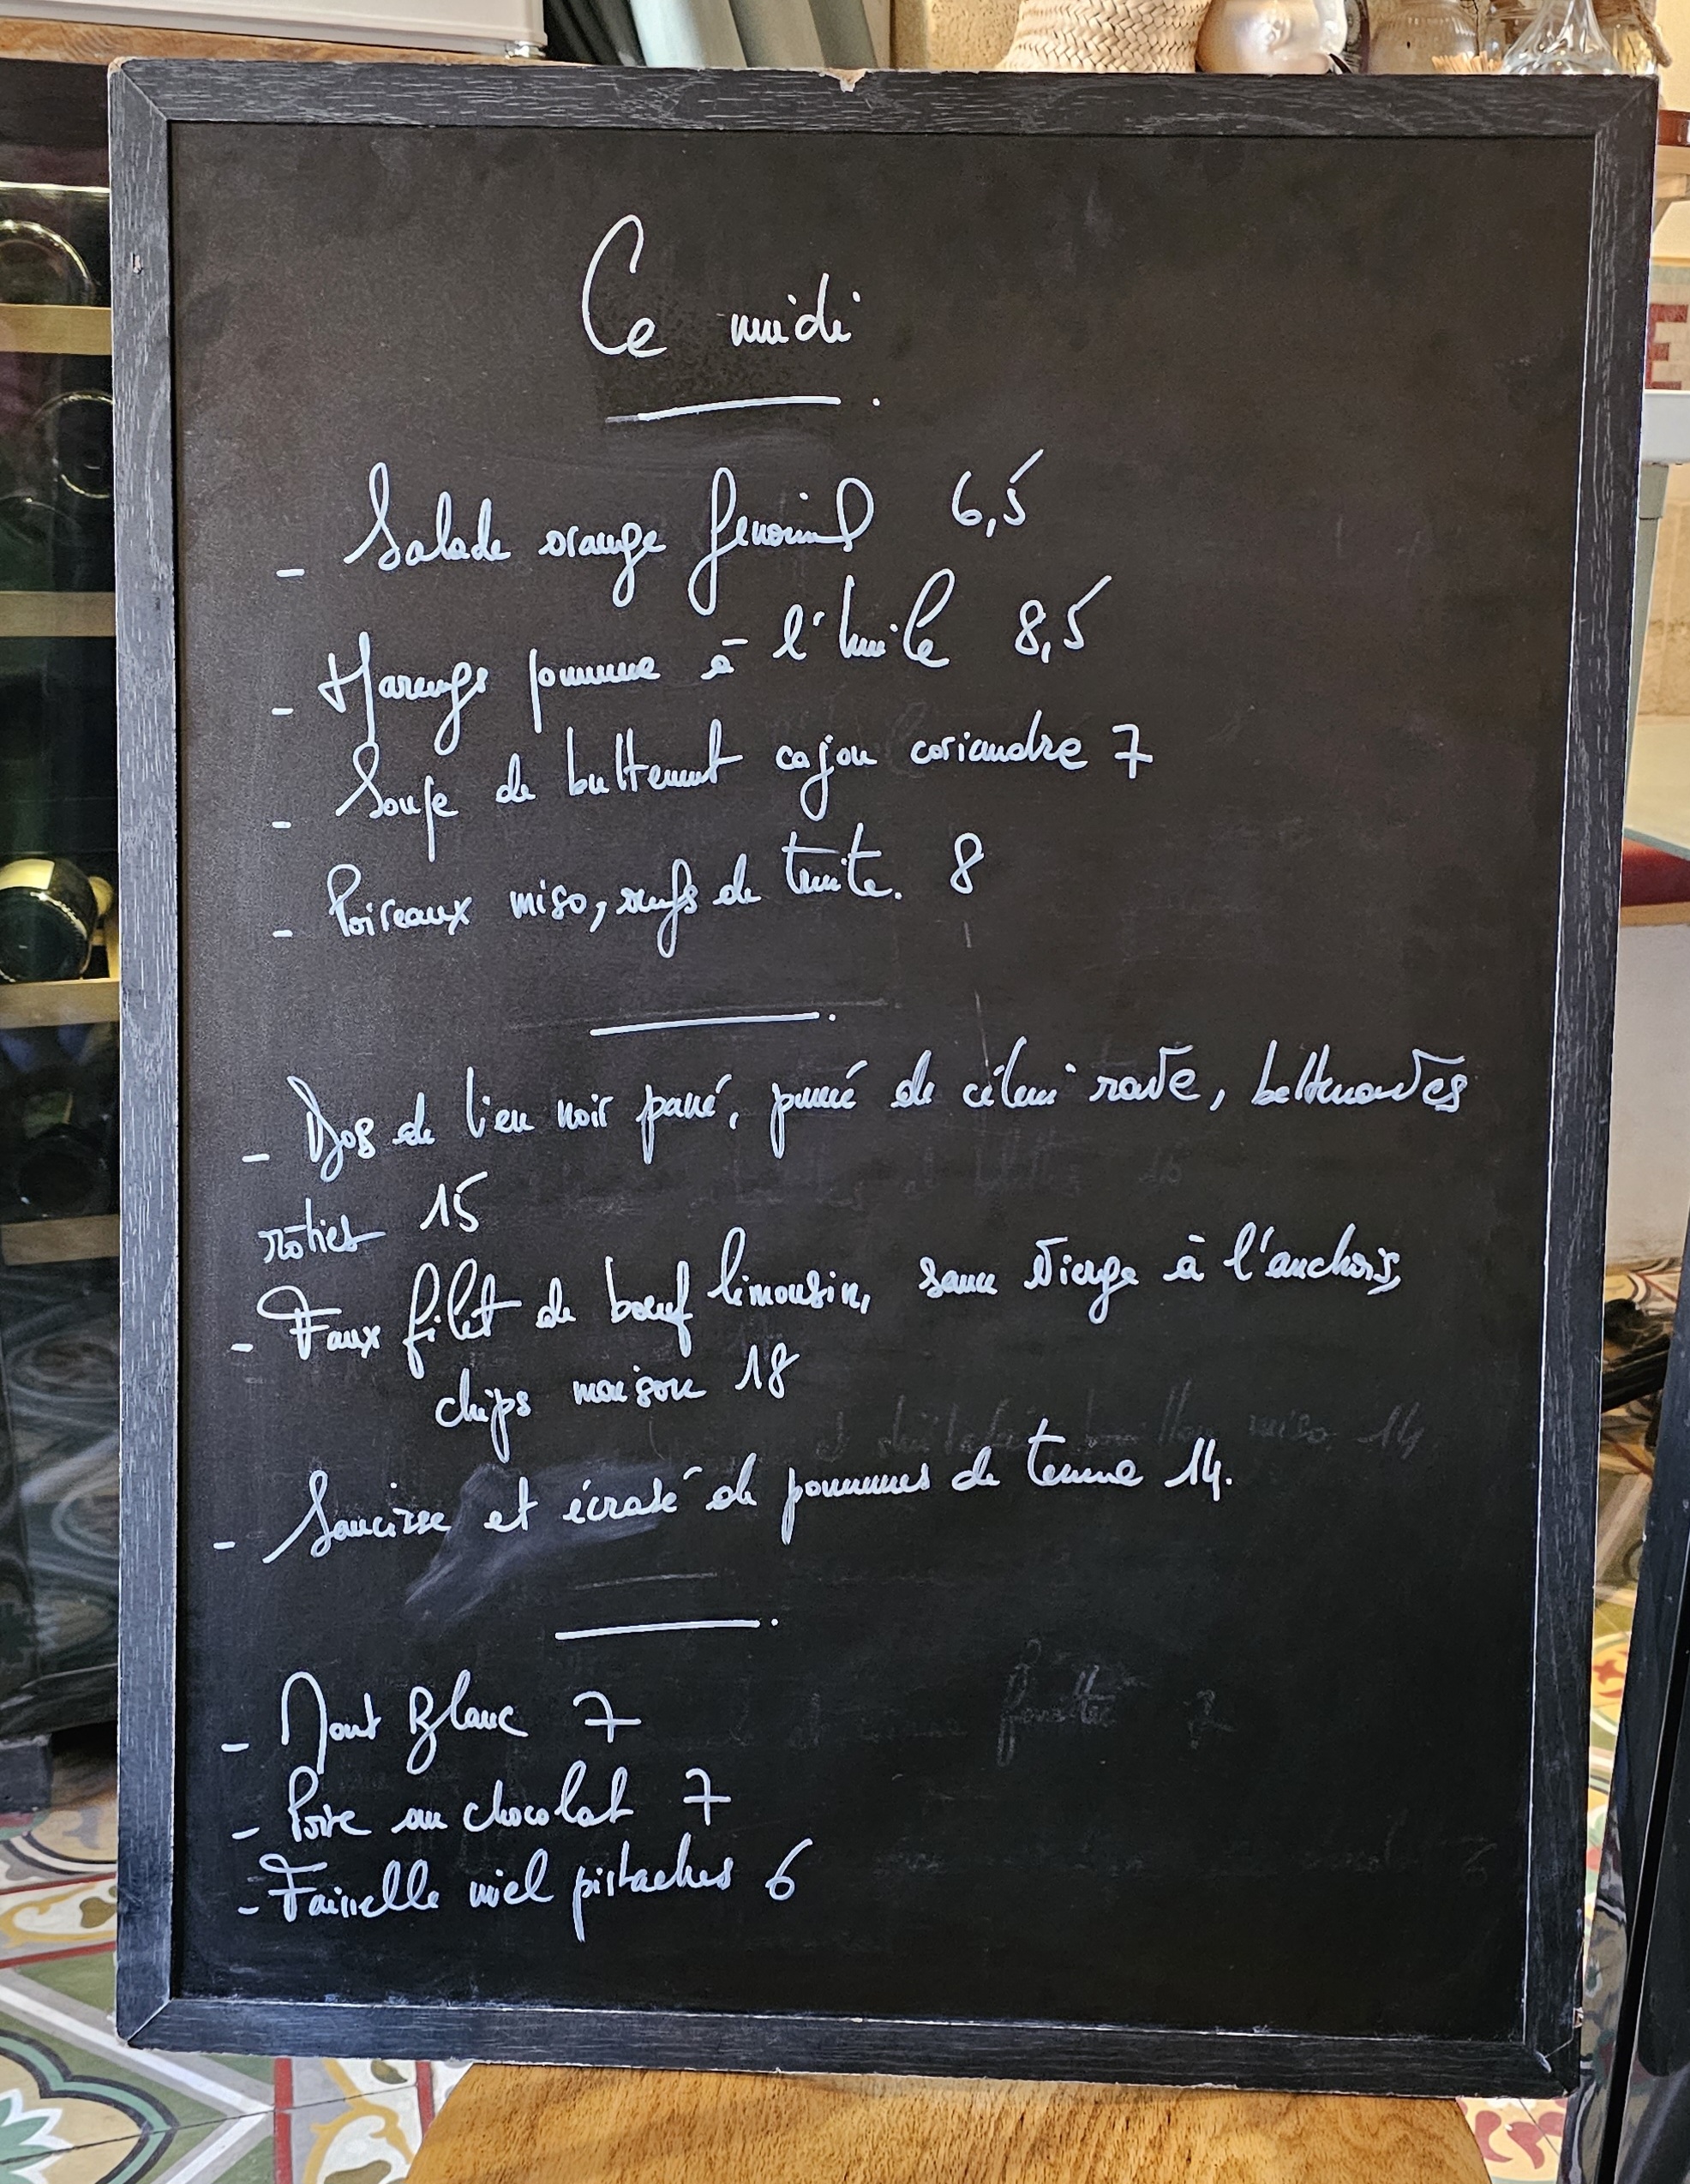 Ce midi
- Salade orange fenouil 6,5
- Harengs pomme à l'huile 8,5
- Soupe de butternut cajou coriandre 7
- Poireaux miso, œufs de truite. 8
- Dos de lieu noir pané, purée de céleri rave, betteraves
roties 15
- Faux filet de bœuf limousin, sauce vierge à l'anchois,
chips maison 18
- Saucisse et écrasé de pommes de terre 14.
- Mont Blanc 7
- Poire au chocolat 7
- Faisselle miel pistaches 6